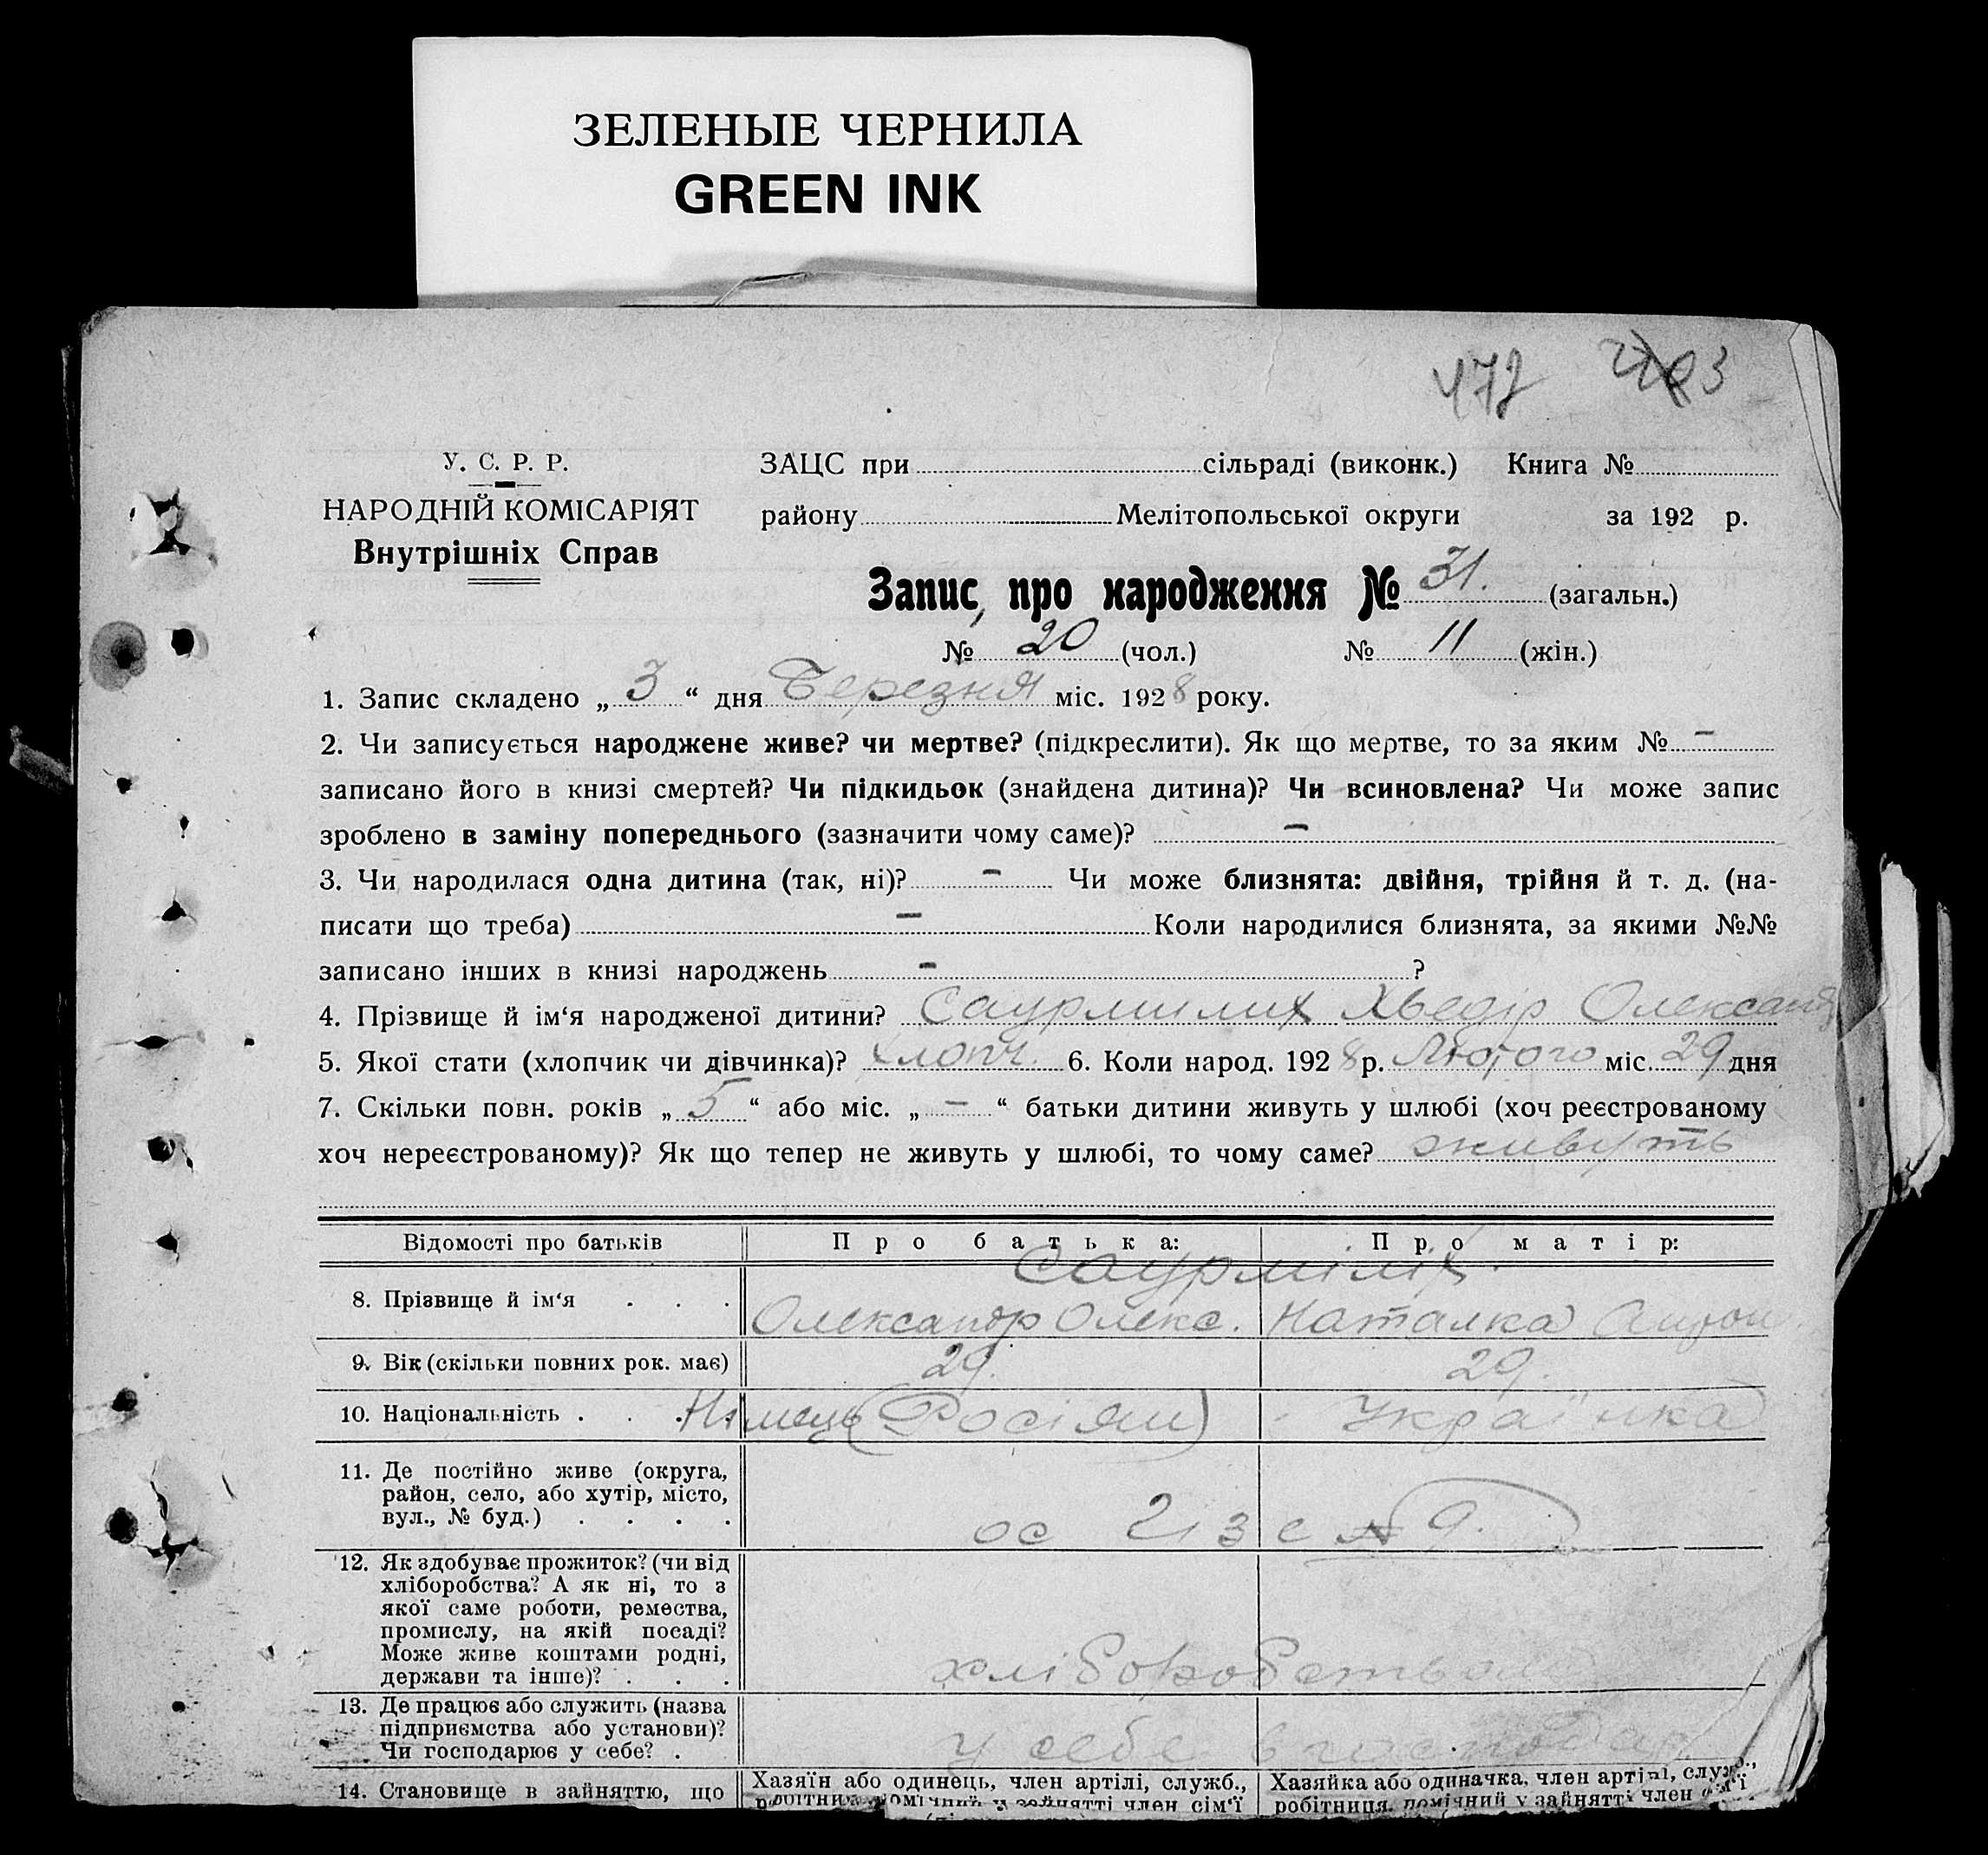 ЗЕЛЕНЫЕ ЧЕРНИЛА
GREEN INK
472
У. С. Р. Р.
НАРОДНІЙ КОМІСАРІЯТ
Внутрішніх Справ
ЗАЦС при сільраді (виконк.) Книга №
району Мелітопольської округи за 192 р.
Запис про народження № 31. (загальн.)
№ 20 (чол.) № 11 (жін.)
1. Запис складено „ 3 “ дня Березня міс. 1928 року.
2. Чи записується народжене живе? чи мертве? (підкреслити). Як що мертве, то за яким № –
записано його в книзі смертей? Чи підкидьок (знайдена дитина)? Чи всиновлена? Чи може запис
зроблено в заміну попереднього (зазначити чому саме)? –
3. Чи народилася одна дитина (так, ні)? – Чи може близнята: двійня, трійня й т. д. (на-
писати що треба) – Коли народилися близнята, за якими №№
записано інших в книзі народжень – ?
4. Прізвище й ім‘я народженої дитини? Саурмилих Хведір Олександ
5. Якої стати (хлопчик чи дівчинка)? хлопч. 6. Коли народ. 1928 р. Лютого міс. 29 дня
7. Скільки повн. років „ 5 “ або міс. „ – “ батьки дитини живуть у шлюбі (хоч реєстрованому
хоч нереєстрованому)? Як що тепер не живуть у шлюбі, то чому саме? живуть
Відомості про батьків Про батька: Про матір:
Саурміліх.
8. Прізвище й ім‘я . . . Олександр Олекс. Наталка
9. Вік (скільки повних рок. має) 29. 29.
10. Національність . . . Німець (Росіян) Українка
11. Де постійно живе (округа,
район, село, або хутір, місто,
вул., № буд.) . . . . ос № 9.
12. Як здобуває прожиток? (чи від
хліборобства? А як ні, то з
якої саме роботи, ремества,
промислу, на якій посаді?
Може живе коштами родні,
держави та інше)? . . . хліборобством
13. Де працює або служить (назва
підприємства або установи)?
Чи господарює у себе? . у себе в господар.
14. Становище в зайняттю, що Хазяїн або одинець, член артілі, служб., Хазяйка або одиначка, член артілі, служб.,
робітник, помічний у зайнятті член сім‘ї робітниця, помічний у зайнятті член сім‘ї